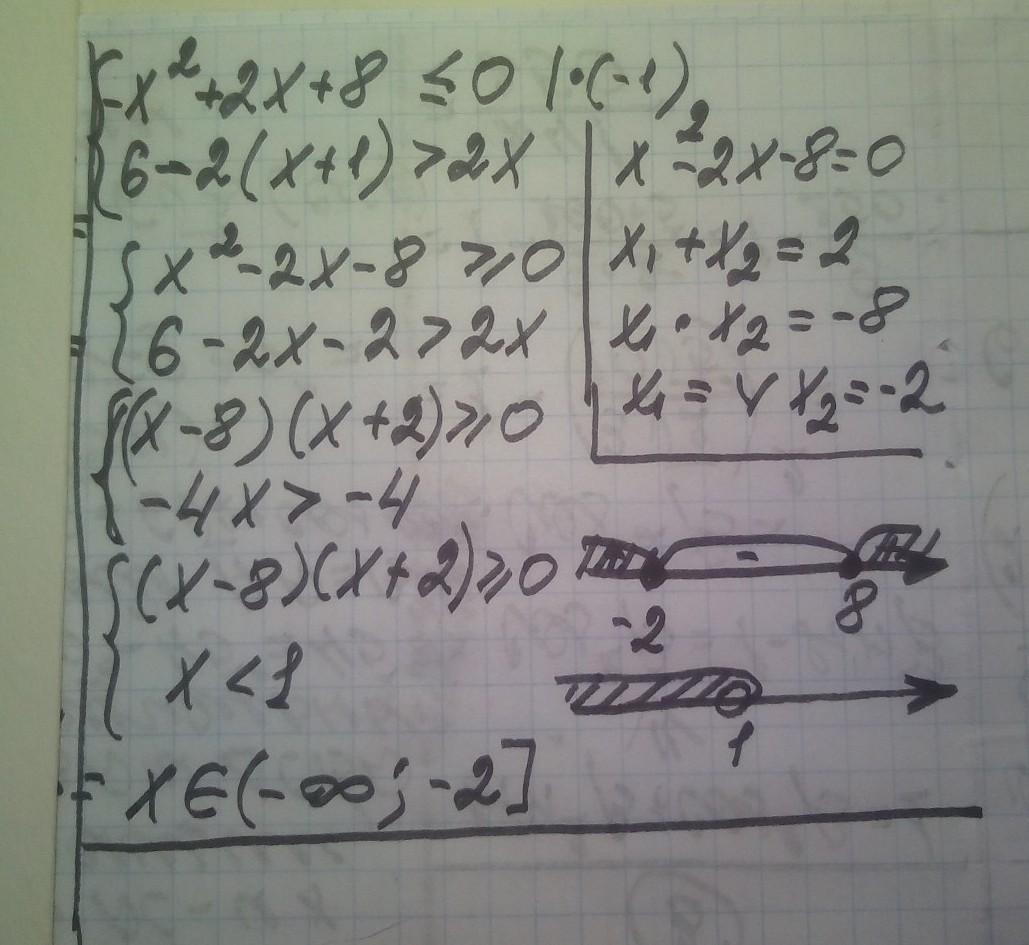 {-x²+2x+8 ≤0 |·(-1)
{6-2(x+1)>2x
x²-2x-8=0
x₁+x₂=2
x₁·x₂=-8
x₁= x₂=-2
{x²-2x-8 ⩾0
{6-2x-2>2x
{(x-8)(x+2)⩾0
{-4x>-4
{(x-8)(x+2)⩾0
{x<1
-
-2 8
1
= x∈(-∞;-2]